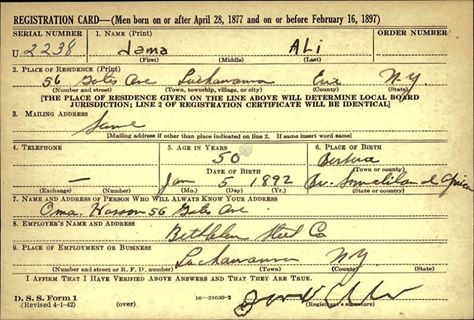 REGISTRATION CARD—(Men born on or after April 28, 1877 and on or before February 16, 1897)
SERIAL NUMBER 1. NAME (Print) ORDER NUMBER
U 2238 Jama ALi
(First) (Middle) (Last)
2. PLACE OF RESIDENCE (Print)
56 Gates Ave Lackawanna Erie N.Y.
(Number and street) (Town, township, village, or city) (County) (State)
[THE PLACE OF RESIDENCE GIVEN ON THE LINE ABOVE WILL DETERMINE LOCAL BOARD
JURISDICTION; LINE 2 OF REGISTRATION CERTIFICATE WILL BE IDENTICAL]
3. MAILING ADDRESS
Same
[Mailing address if other than place indicated on line 2. If same insert word same]
4. TELEPHONE 5. AGE IN YEARS 6. PLACE OF BIRTH
50 Berbera
DATE OF BIRTH (Town or county)
— Jan 5 1892 Br. Somaliland Africa
(Exchange) (Number) (Mo.) (Day) (Yr.) (State or country)
7. NAME AND ADDRESS OF PERSON WHO WILL ALWAYS KNOW YOUR ADDRESS
Oma Hassan 56 Gates Ave.
8. EMPLOYER'S NAME AND ADDRESS
Bethlehem Steel Co
9. PLACE OF EMPLOYMENT OR BUSINESS
Lackawanna NY
(Number and street or R. F. D. number) (Town) (County) (State)
I AFFIRM THAT I HAVE VERIFIED ABOVE ANSWERS AND THAT THEY ARE TRUE.
D. S. S. Form 1
(Revised 4-1-42) (over) 16—21630-2 (Registrant's signature)